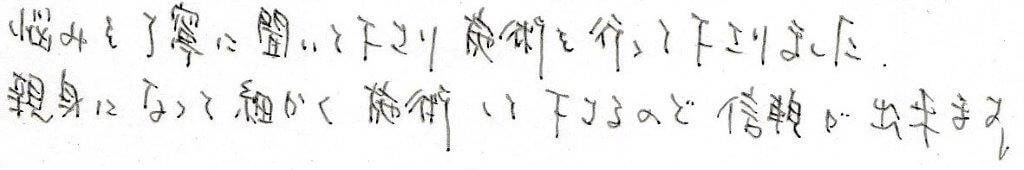 悩みを丁寧に聞いて下さり施術を行って下さりました.
親身になって細かく施術して下さるので信頼が出来ます。